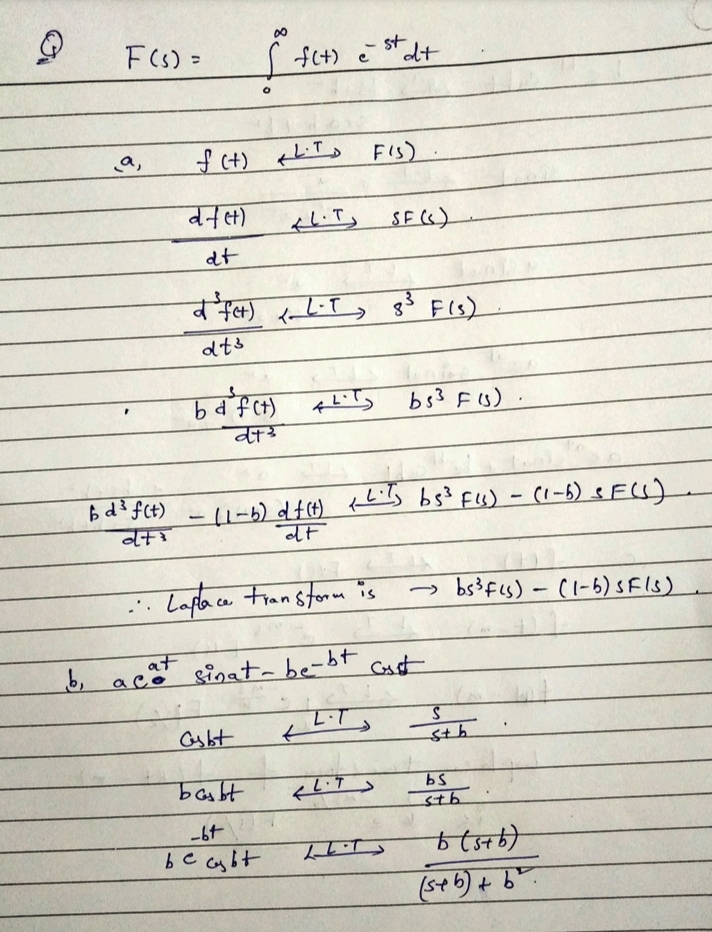 Q F(s) = ∫₀^∞ f(t) e^-st dt
a, f(t) <-L.T-> F(s).
df(t)/dt <-L.T-> SF(s).
d³f(t)/dt³ <-L.T-> s³ F(s).
b d³f(t)/dt³ <-L.T-> bs³ F(s).
b d³f(t)/dt³ - (1-b) df(t)/dt <-L.T-> bs³ F(s) - (1-b) sF(s).
∴ Laplace transform is → bs³F(s) - (1-b) SF(s).
b, ae^at sinat - be^-bt
Cosbt <-L.T-> s/s+b.
b cosbt <-L.T-> bs/s+b.
be^-bt cosbt <-L.T-> b(s+b)/(s+b)+b².